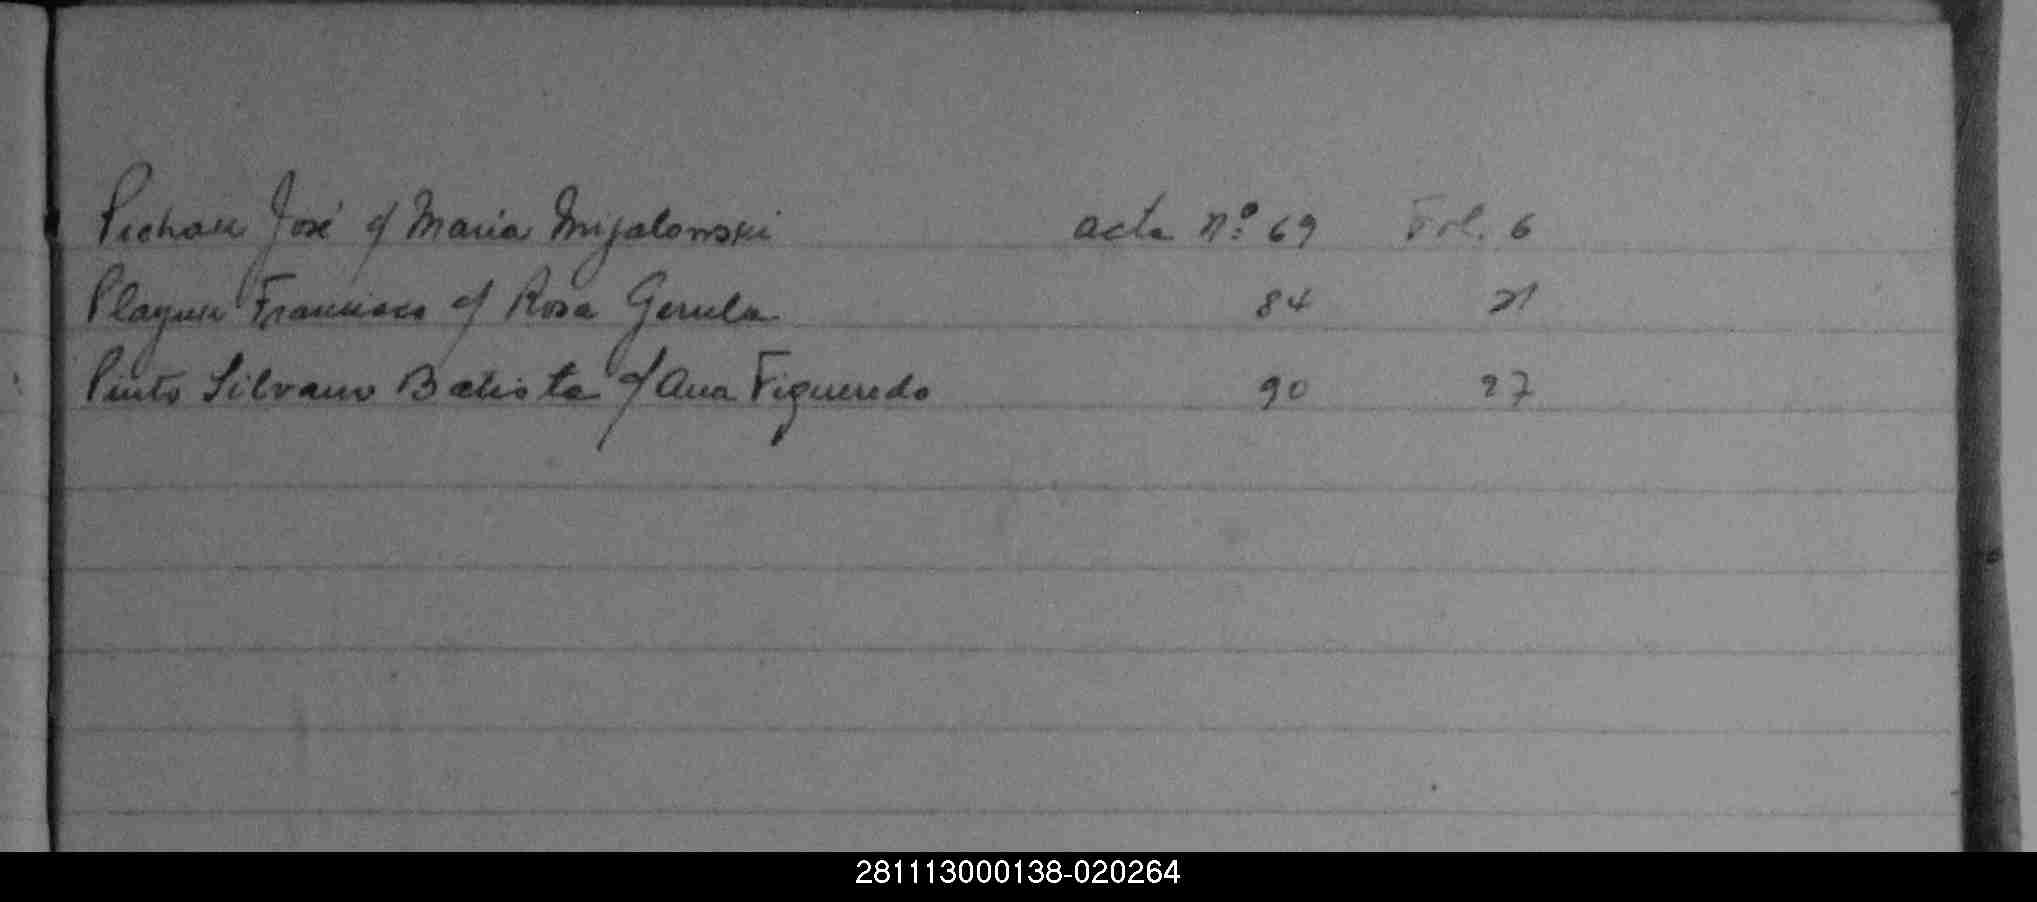 José c/ María Mijalonski acta nº 69 Fol. 6
Francisco c/ Rosa Gerula 84 21
Pinto Silvano Batista c/ Ana Figueredo 90 27
281113000138-020264